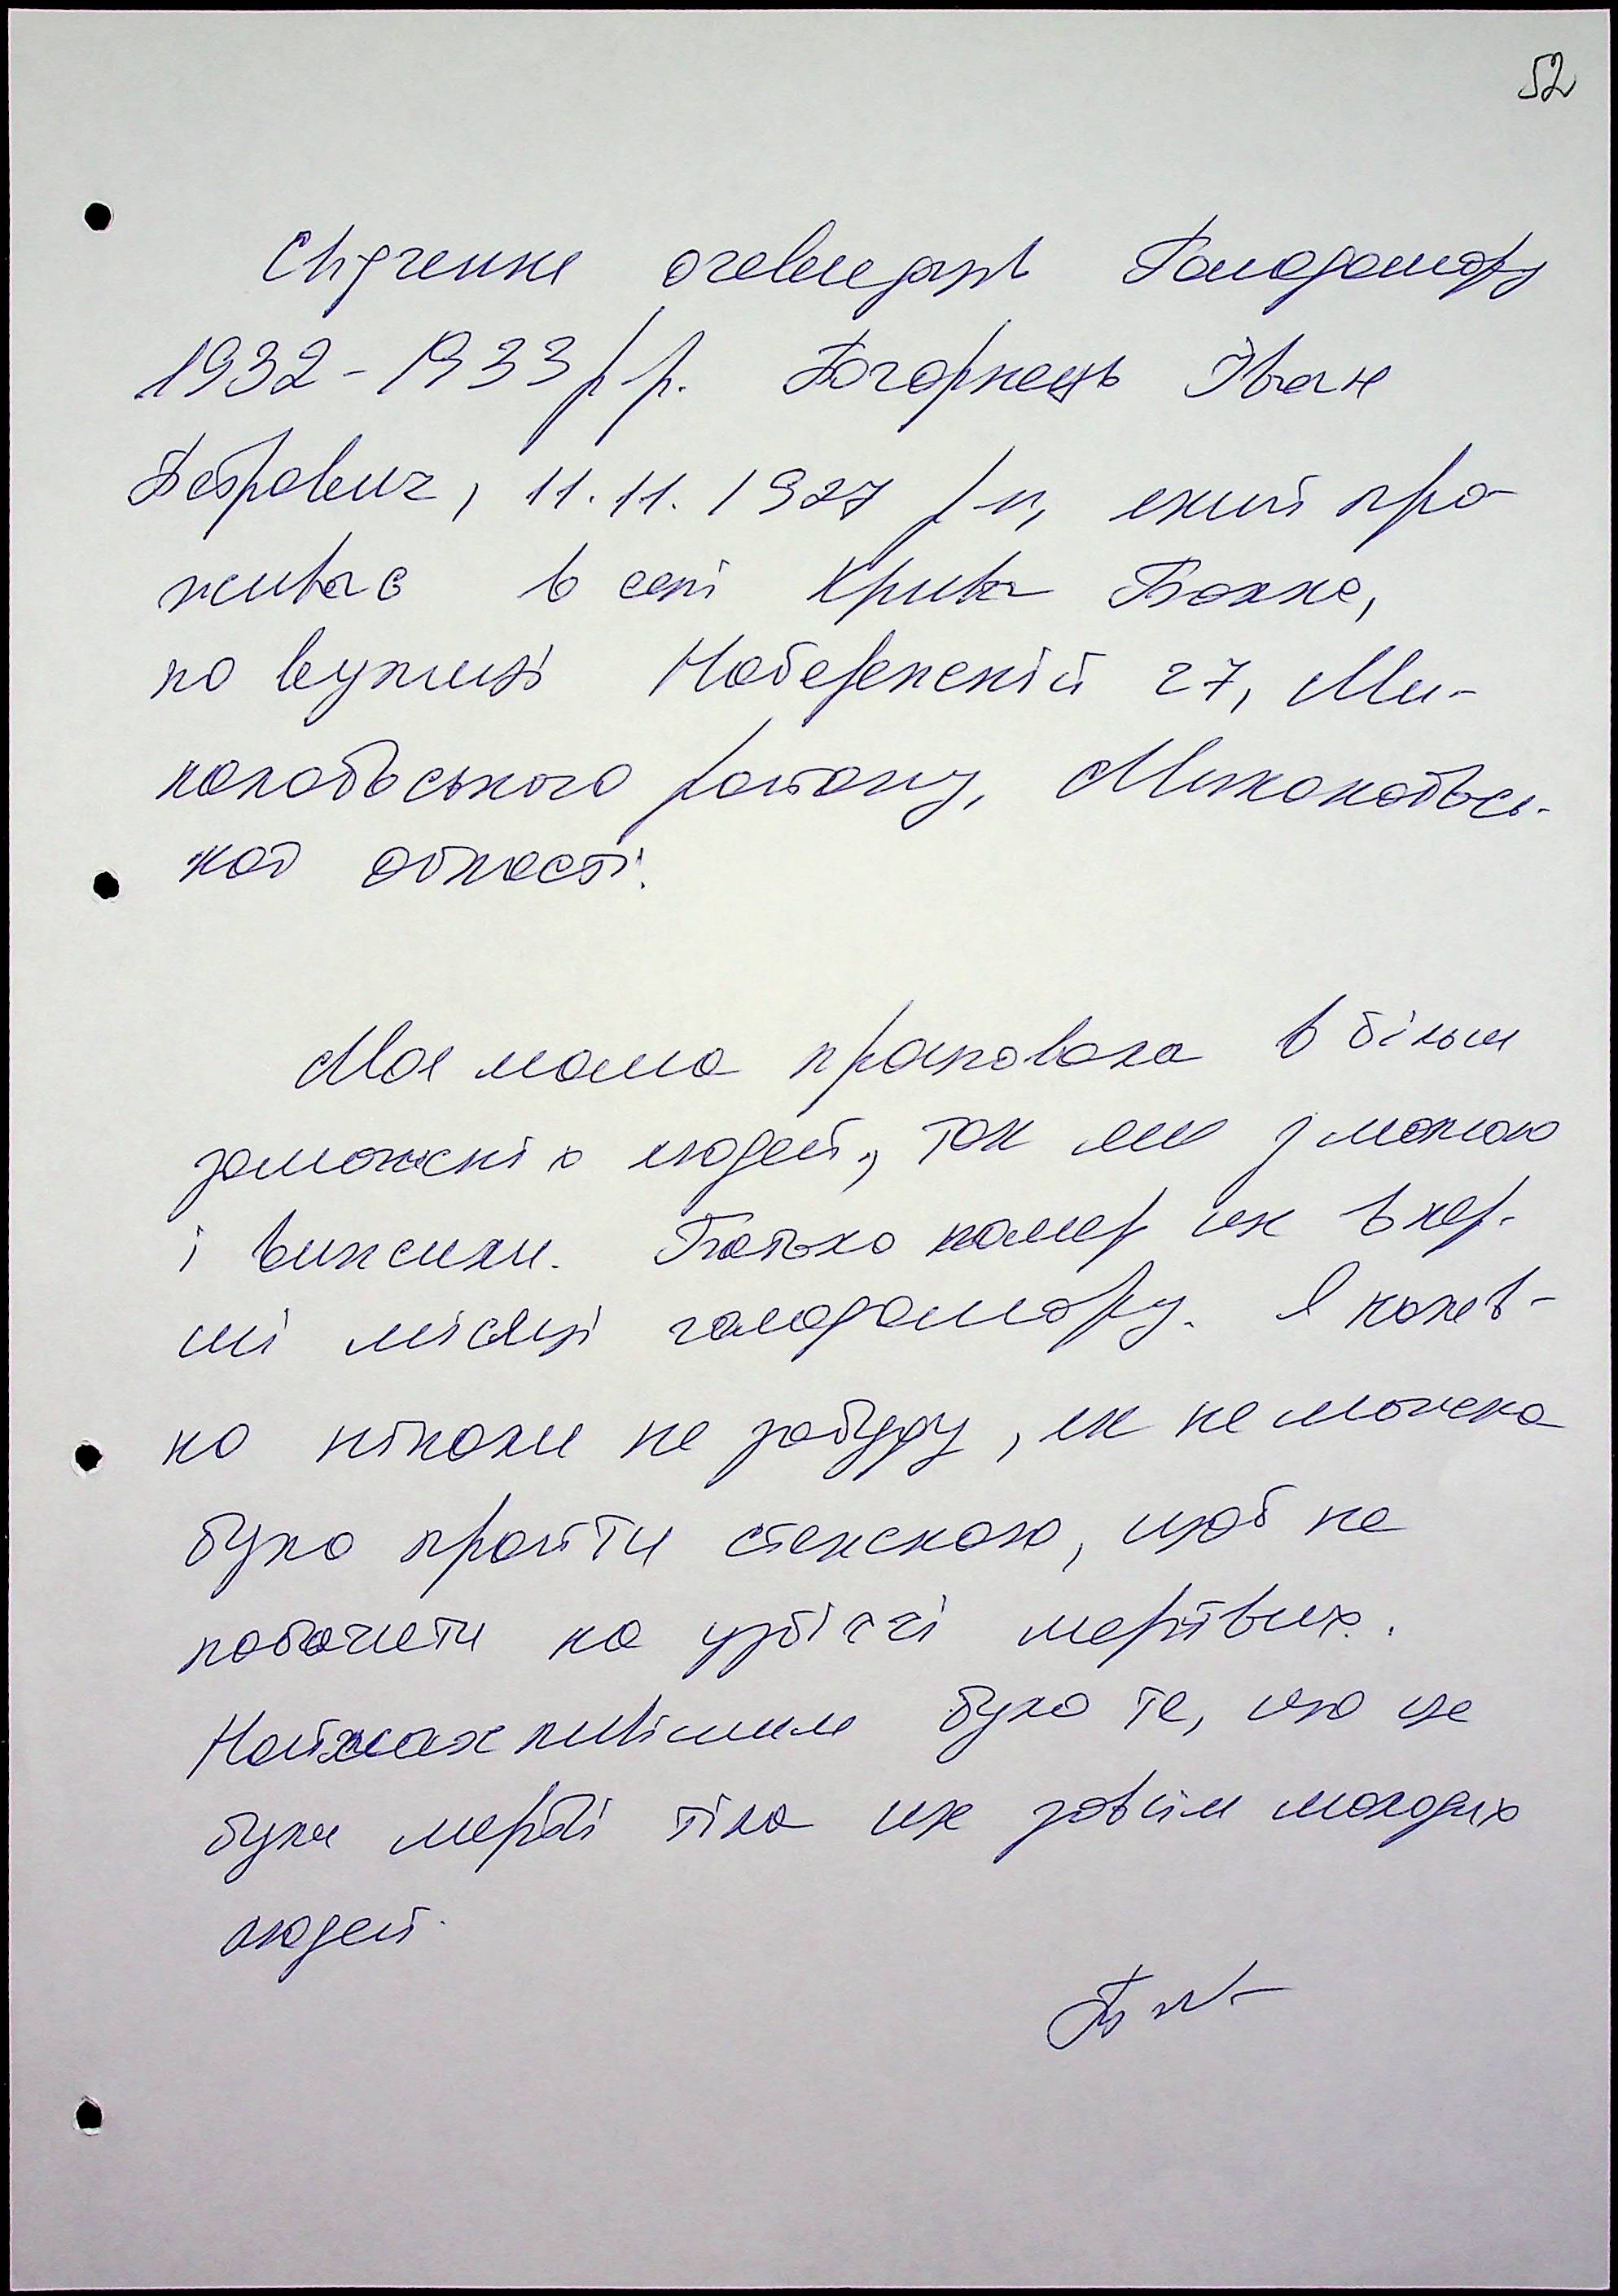 52
Свідчення очевидців Голодомору
1932-1933 р.р. Погорнець Іван
Петрович, 11.11.1927 р.н, який про-
живає в селі Крива Балка,
по вулиці Набережній 27, Ми-
колаївського району, Миколаївсь-
кої області.
Моя мама працювала в більш
заможніх людей, так ми з мамою
і вижили. Батько помер ще в пер-
ші місяці голодомору. Я напев-
но ніколи не забуду, як не можна
було пройти стежкою, щоб не
побачити на узбіччі мертвих.
Найжахливішим було те, що це
були мертві тіла ще зовсім молодих
людей.